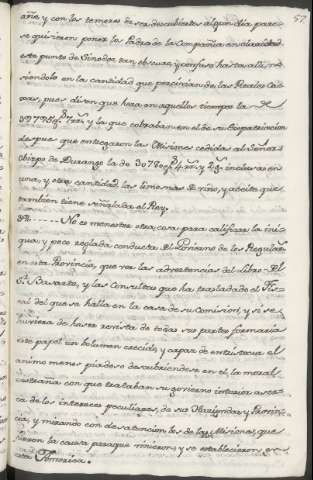 57
añe y con los temores de ser descubiertos algun dia pare-
se quisieron poner los Padres de la Compañia en claridad
este punto de Sinodos tan obscuro, y confuso hasta alli, re-
siendolo en la cantidad que percivian de las Reales Ca-
xas, pues dicen que hera en aquellos tiempos la de
y la que cobraban en el de su Ocupacion
de que que entregaron las Misiones cedidas al Señor
obispo de Durango la de inclusas en
una, y otra cantidad, las limosnas de vino, y aceite que
tambien tiene señalada el Rey.
No es menester otra cosa para calificar la ini-
qua, y poco reglada conducta del Govierno de los Regulares
en esta Provincia, que ver las advertencias del Libro del
P.e Basarte, y las Consultas que ha trasladado el Fis-
cal del que se halla en la casa de su Comision, y si se
huviera de hacer revista de todas sus partes formaria
este papel un bolumen crecido, y capaz de entristecer el
animo menos piadoso descubriendose en el, la moral
con que trataban su govierno interior acer-
ca de los intereses peculiares de sus Haziendas, y Provin-
cia, y mirando con desatencion los de las Misiones, que
fueron la causa para que vinieron, y se establecieron en
esta America.